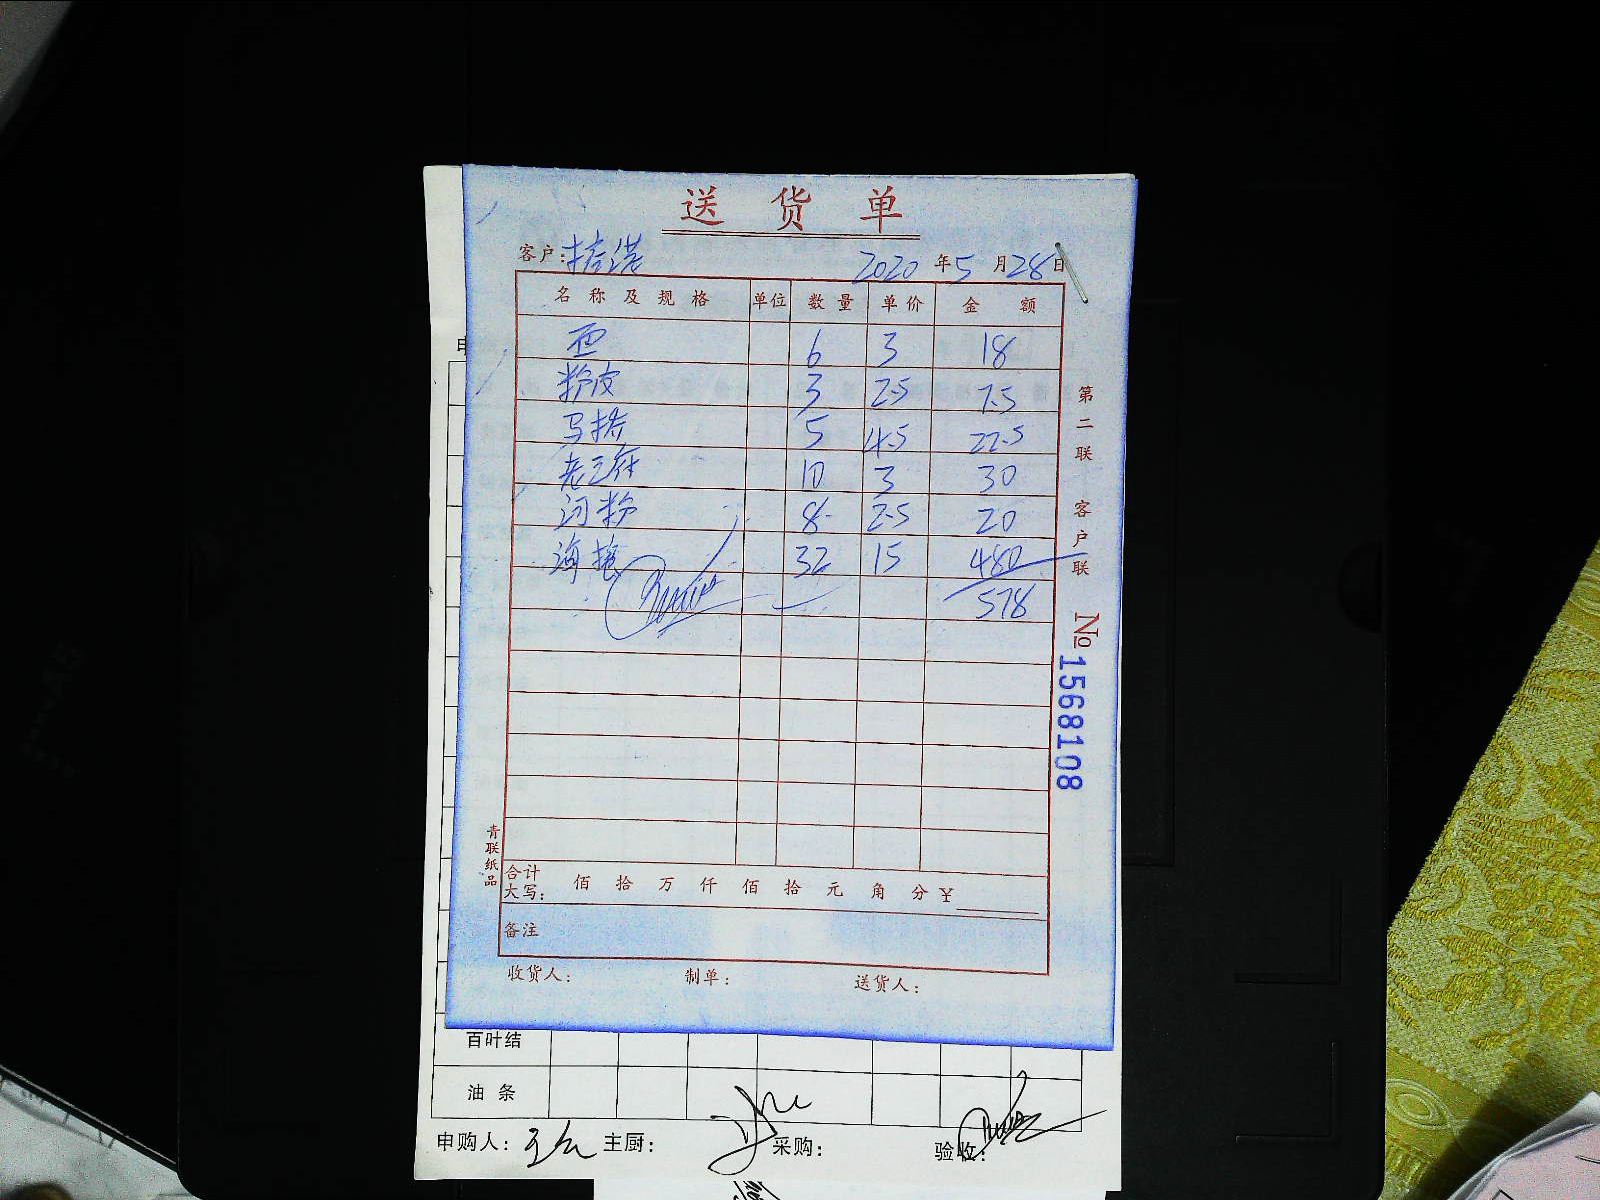 送货单
客户:
2020年5月28日
名称及规格 单位 数量 单价 金额
6 3 18
粉皮 3 2.5 7.5
马蹄 5 4.5 22.5
10 3 30
河粉 8 2.5 20
海 32 15 480
578
第二联 客户联
No 1568108
青联纸品
合计大写: 佰 拾 万 仟 佰 拾 元 角 分 ¥
备注
收货人: 制单: 送货人:
百叶结
油条
申购人: 主厨: 采购: 验收: